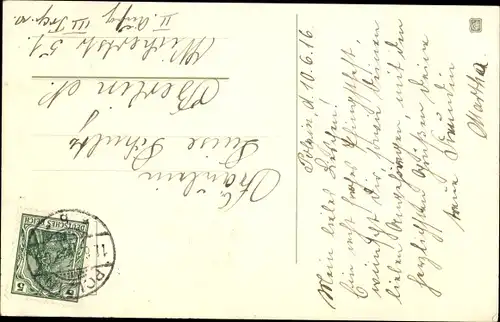 Polzin, d 10.6.16
Mein liebes Lieschen!
Ein recht frohes Pfingstfest
wünscht Dir sowie Deinen
lieben Angehörigen, mit den
herzlichsten Grüßen Deine
treue Freundin
Martha
Fräulein
Luise Schultz
Berlin N.
Wichertstr 51.
II. Aufg III Trep.
DEUTSCHES REICH
5 5
POLZIN